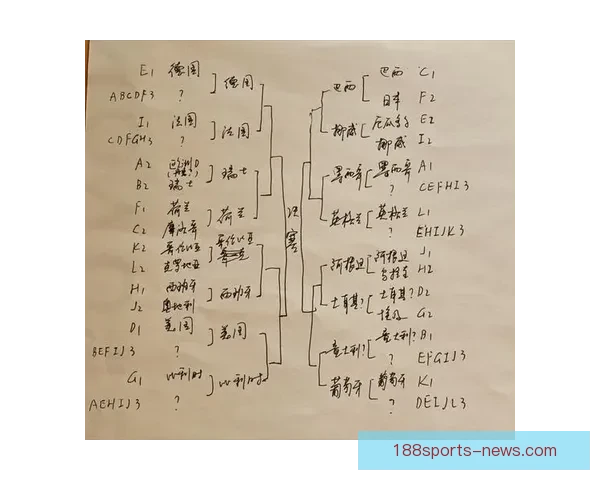 E1 德国
ABCDF3 ?
德国
I1 法国
CDFGH3 ?
法国
A2 欧洲D
B2 瑞士
瑞士
F1 荷兰
C2 摩洛哥
荷兰
K2 哥伦比亚
L2 克罗地亚
哥伦比亚
H1 西班牙
J2 奥地利
西班牙
D1 美国
BEFIJ3 ?
美国
G1 比利时
AEHIJ3 ?
比利时
决赛
巴西
巴西 C1
日本 F2
挪威
厄瓜多尔 E2
挪威 I2
墨西哥
墨西哥 A1
? CEFHI3
英格兰
英格兰 L1
? EHIJK3
阿根廷
阿根廷 J1
乌拉圭 H2
土耳其?
土耳其? D2
埃及 G2
意大利?
意大利? B1
? EFGIJ3
葡萄牙
葡萄牙 K1
? DEIJL3
188sports-news.com